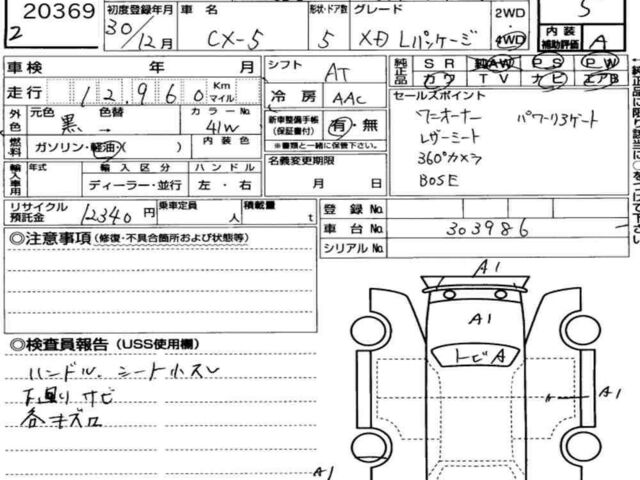 20369
2
初度登録年月
30/12月
車名
CX-5
形状・ドア数
5
グレード
XD Lパッケージ
2WD
4WD
5
内装補助評価 A
車検 年 月
シフト AT
純正品
SR 純AW PS PW
カワ TV ナビ エアB
走行 12,960 Km マイル
冷房 AAC
セールスポイント
ワンオーナー パワーリアゲート
レザーシート
360°カメラ
BOSE
外色 元色 黒 色替 カラーNo. 41W
新車整備手帳(保証書付) 有・無
※書類と一緒に保管下さい。
燃料 ガソリン・軽油・( ) 内装色
名義変更期限
月 日
輸入車用 年式 輸入区分 ハンドル
ディーラー・並行 左・右
リサイクル預託金 12340円 乗車定員 人 積載量 t
登録No.
車台No. 303986
シリアルNo.
◎注意事項(修復・不具合箇所および状態等)
◎検査員報告(USS使用欄)
ハンドル、シート小スレ
下廻りサビ
各キズロ
A1
A1
トビA
A1
A1